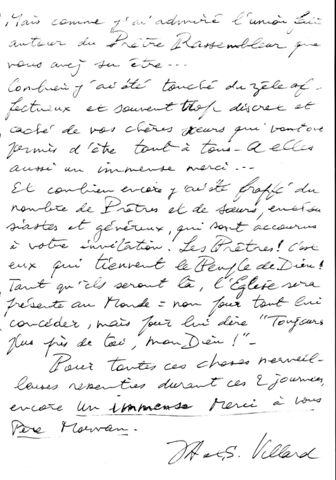 Mais comme j'ai admiré l'union fait
autour du Prêtre Rassembleur que
vous avez su être...
Combien j'ai été touché du zèle af-
fectueux et souvent trop discret et
caché de vos chères sœurs qui vous ont
permis d'être tout à tous - A elles
aussi un immense merci...
Et combien encore j'ai été frappé du
nombre de Prêtres et de sœurs, enthou
siastes et généreux, qui sont accourus
à votre invitation. Les Prêtres! C'est
eux qui tiennent le Peuple de Dieu!
Tant qu'ils seront là, l'Eglise sera
présente au Monde = non pour tout lui
concéder, mais pour lui dire "Toujours
plus près de toi, mon Dieu!" -
Pour toutes ces choses merveil-
leuses ressenties durant ces 2 journées,
encore un immense Merci à vous
Père Morvan.
S. Villard